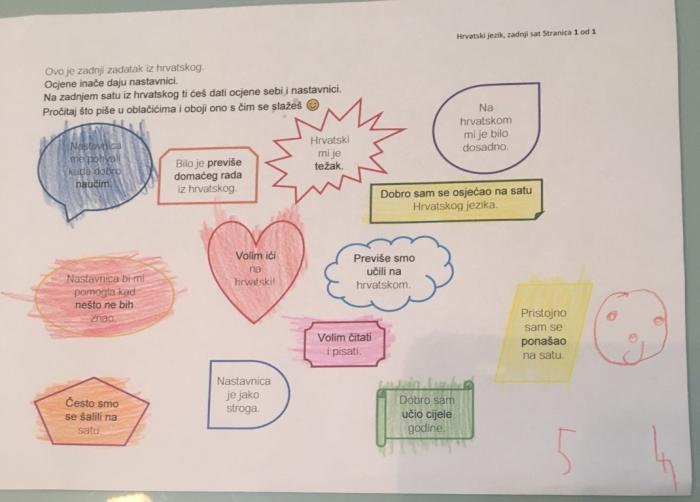 Hrvatski jezik, zadnji sat Stranica 1 od 1
Ovo je zadnji zadatak iz hrvatskog.
Ocjene inače daju nastavnici.
Na zadnjem satu iz hrvatskog ti ćeš dati ocjene sebi i nastavnici.
Pročitaj što piše u oblačićima i oboji ono s čim se slažeš 😊
Nastavnica
me pohvali
kada dobro
naučim.
Bilo je previše
domaćeg rada
iz hrvatskog.
Hrvatski
mi je
težak.
Na
hrvatskom
mi je bilo
dosadno.
Dobro sam se osjećao na satu
Hrvatskog jezika.
Nastavnica bi mi
pomogla kad
nešto ne bih
znao.
Volim ići
na
hrvatski!
Previše smo
učili na
hrvatskom.
Volim čitati
i pisati.
Pristojno
sam se
ponašao
na satu.
Često smo
se šalili na
satu.
Nastavnica
je jako
stroga.
Dobro sam
učio cijele
godine.
5 4